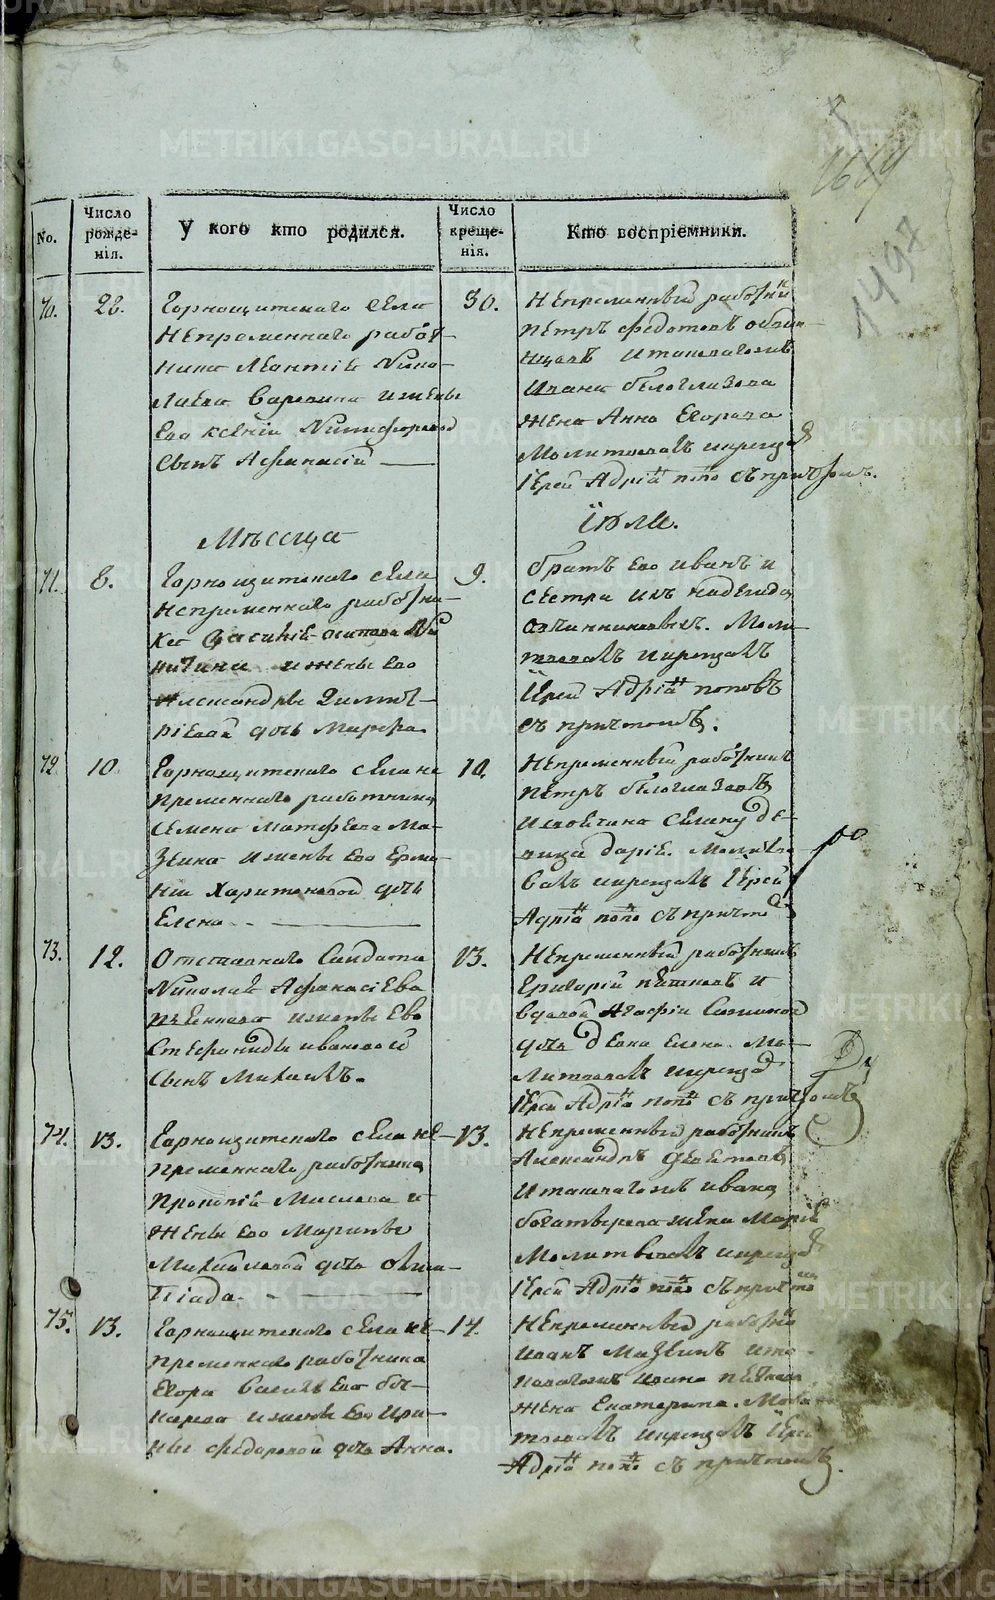 METRIKI.GASO-URAL.RU
1497
No.
Число рожде-нія.
У кого кто родился.
Число креще-нія.
Кто воспріемники.
70.
28.
Горнощитскаго села
непременнаго работ-
ника Леонтія Нико-
лаева жены
Его Ксеніи Никифоровой
сынъ Афанасій
30.
Непременный работни
Петръ Федотовъ
Ивана Белоглазова
жена Анна Егорова
Молитвовалъ и крещал
Іерей Адріа попо съ причтомъ.
Мѣсяца
Іюля.
71.
8.
Горнощитскаго села
непременнаго работни-
ка
и жены Его
Александры Димит-
ріевой дочь Марфа.
9.
братъ Его Иванъ и
сестра ихъ Надежда
Овчинниковы. Моли-
твовалъ и крещалъ
Іерей Адріа поповъ
съ причтомъ.
72.
10.
Горнощитскаго села не
пременнаго работника
Семена Матфеева Ма-
зеина и жены Его Ерми-
ніи Харитоновой дочь
Елена.
10.
Непременный работникъ
Петръ Белоглазовъ
де-
вица Дарія. Молитво
валъ и крещалъ Іерей
Адріа попо съ причто
73.
12.
Отставнаго Салдата
Николая Афанасіева
и жены Его
Стефаниды Ивановой
сынъ Михаилъ.
13.
Непременный работникъ
Григорій и
вдовой Агафіи
дочь Девка Елена. Мо-
литвовалъ и крещал
Іерей Адріа попо съ причтомъ
74.
13.
Горнощитскаго села не-
пременнаго работника
Прокопія Маслова и
жены Его Марины
Михайловой дочь Олим-
піада.
13.
Непременный работникъ
Александръ Федотовъ
Ивана
Богатырева жена Марія
Молитвовалъ и крещал
Іерей Адріа попо съ причто
75.
13.
Горнощитскаго села не-
пременнаго работника
Егора Васильева Бо-
карева и жены Его Ири-
ны Федоровой дочь Анна.
14.
Непременный работни
Иванъ Мазеинъ
Ивана
жена Екатерина. Моли
твовалъ и крещалъ Іерей
Адріа попо съ причтомъ.